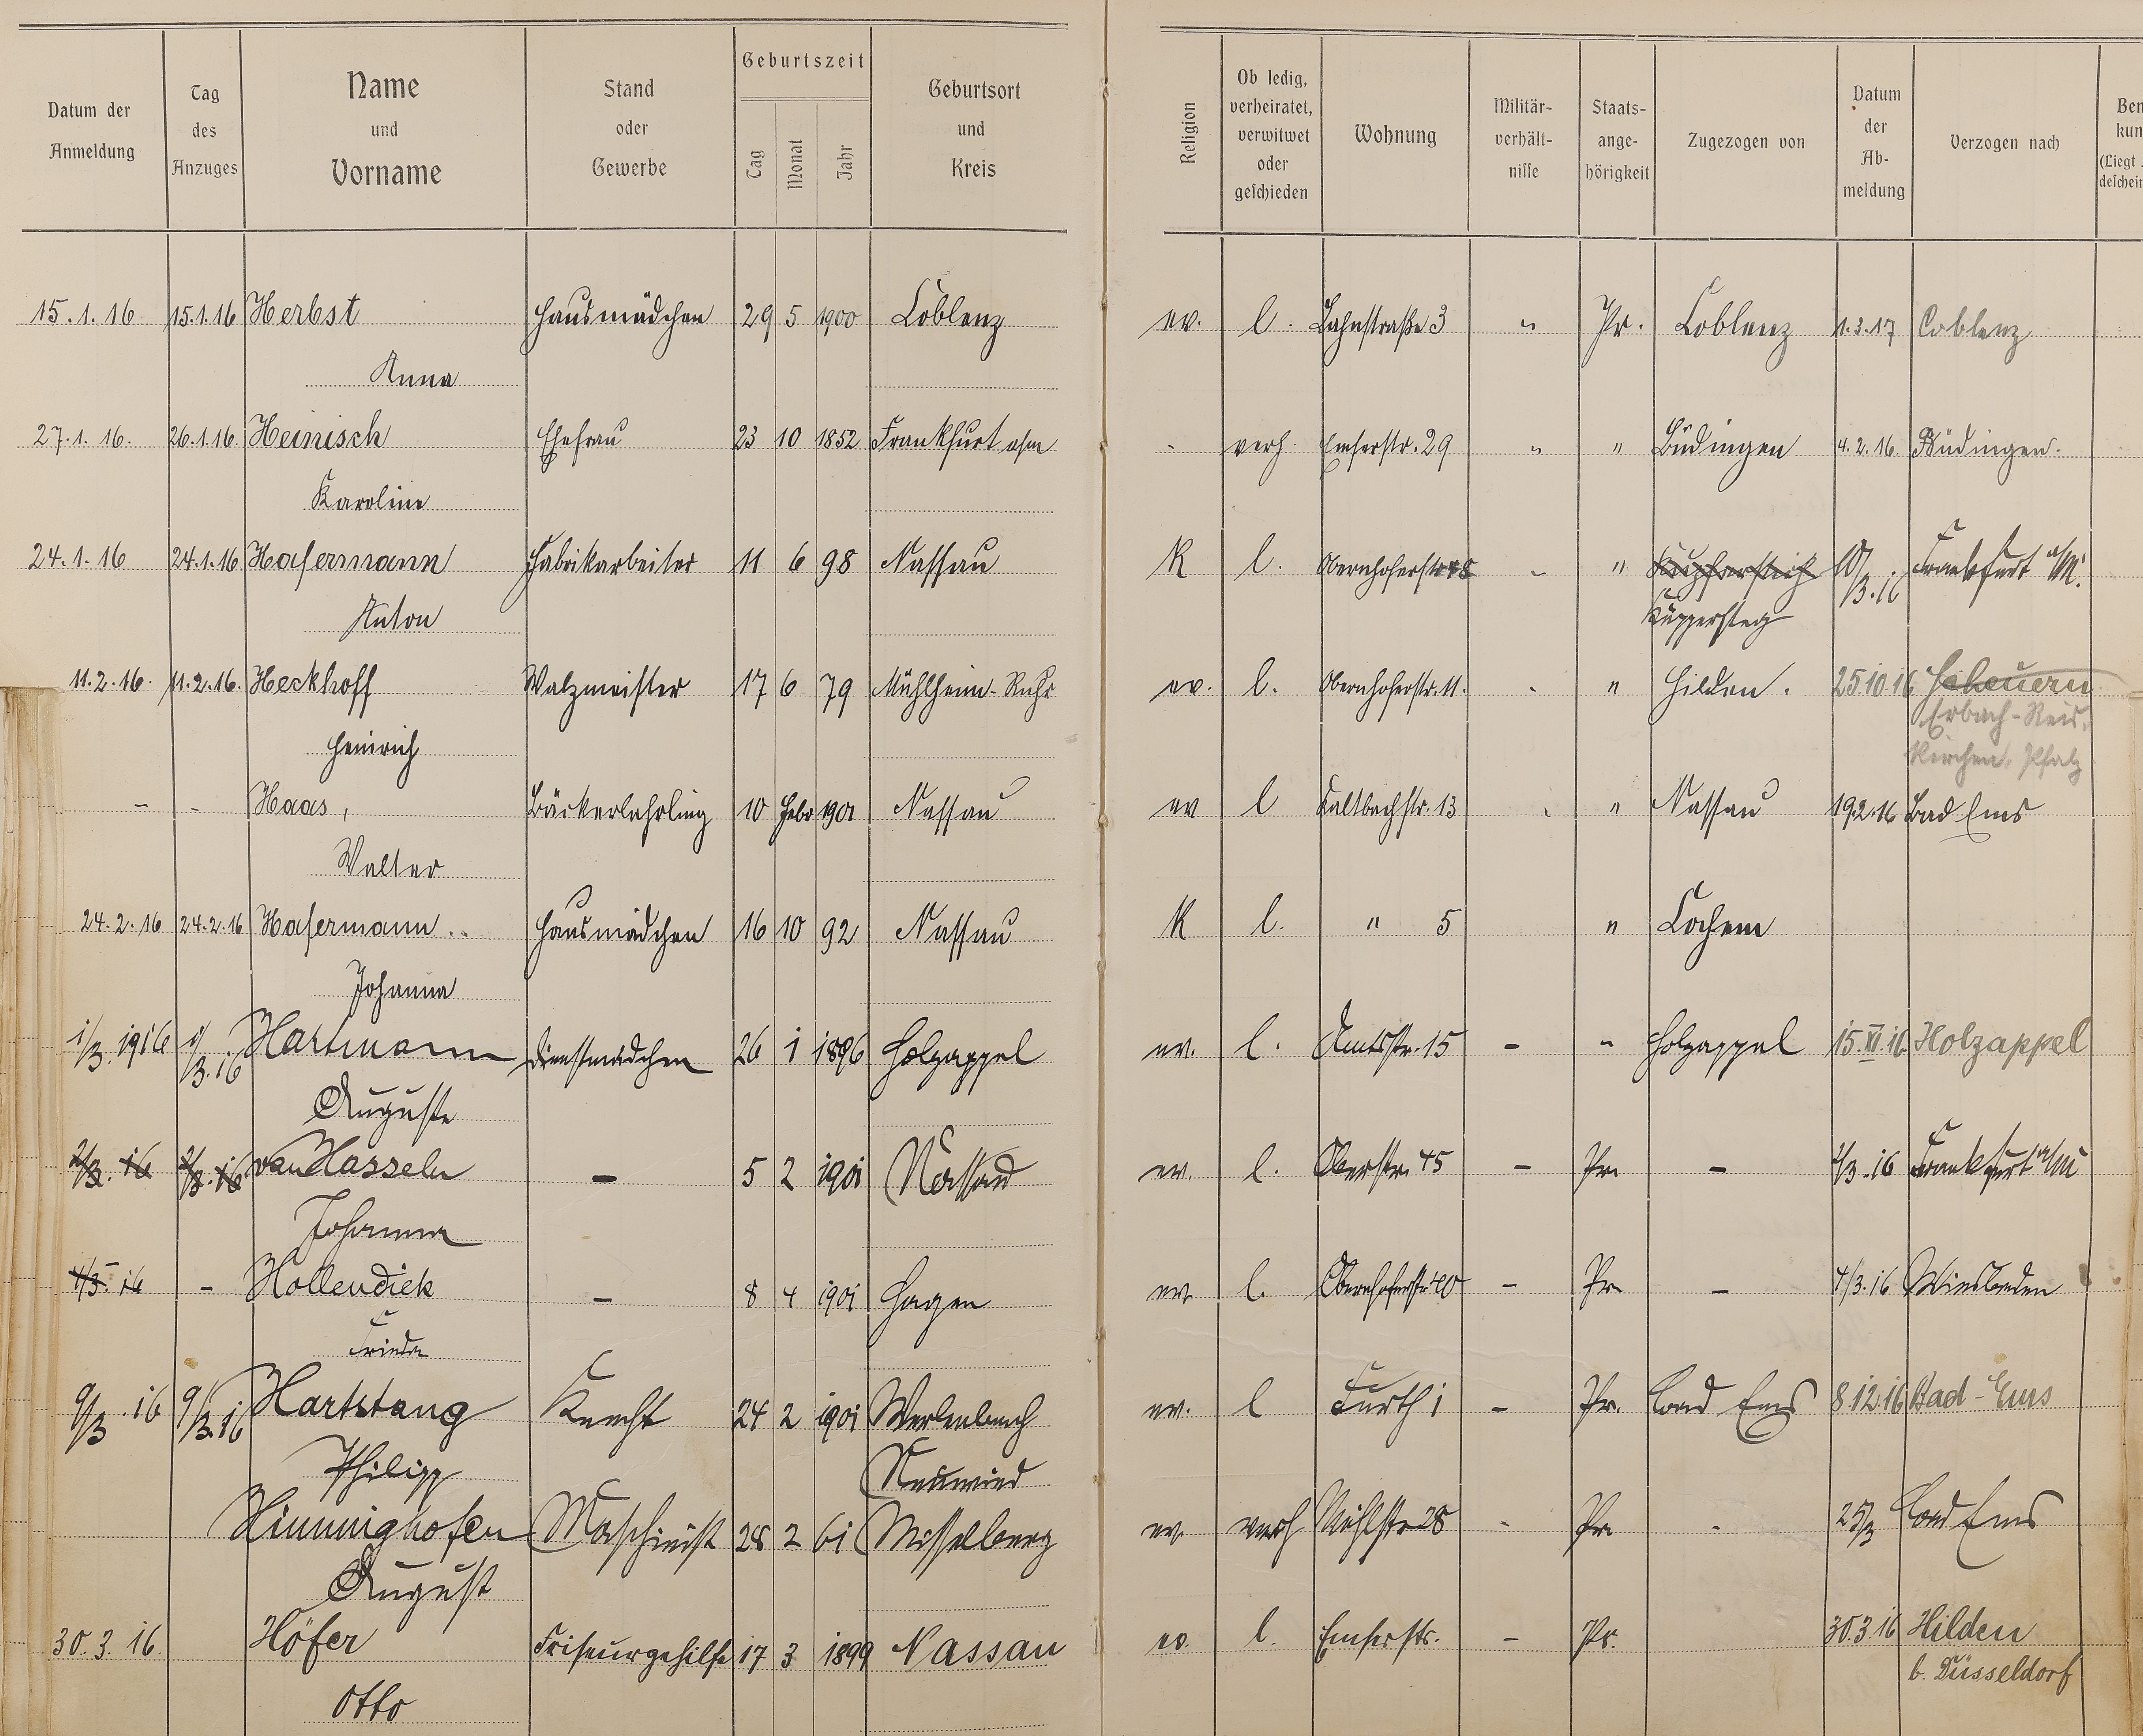 Datum der Anmeldung | Tag des Anzuges | Name und Vorname | Stand oder Gewerbe | Geburtszeit Tag Monat Jahr | Geburtsort und Kreis | Religion | Ob ledig, verheiratet, verwitwet oder geschieden | Wohnung | Militär-verhält-nisse | Staats-ange-hörigkeit | Zugezogen von | Datum der Ab-meldung | Verzogen nach
15.1.16 15.1.16 Herbst Hausmädchen 29 5 1900 Coblenz ev. l. Lahnstraße 3 " Pr. Coblenz 1.3.17 Coblenz
Anna
27.1.16. 26.1.16. Heinisch Ehefrau 23 10 1852 Frankfurt a/m - verh. Emserstr. 29 " " Büdingen 4.2.16. Büdingen.
Karoline
24.1.16 24.1.16 Hafermann Fabrikarbeiter 11 6 98 Nassau K l. Obernhoferstr " Frankfurt a/M.
Anton Küppersteg
11.2.16. 11.2.16. Heckhoff Walzmeister 17 6 79 Mühlheim-Ruhr ev. l. Obernhoferstr. 11. " Hilden. 25.10.16 Scheuern
Erbach-Reis.
Heinrich kirchen, Pfalz
- - Haas, Bäckerlehrling 10 Febr 1901 Nassau ev l Kaltbachstr. 13 " Nassau 19.2.16 Bad Ems
Walter
24.2.16 24.2.16 Hafermann Hausmädchen 16 10 92 Nassau K l. " 5 " Cochem
Johanna
1/3. 1916 1/3.16 Hartmann Dienstmädchen 26 1 1896 Holzappel ev. l. Amtsstr. 15 - " Holzappel 15.XI.16 Holzappel
Auguste
2/3. 16 2/3.16 van Hasseln - 5 2 1901 Nassau ev. l. Oberstr. 45 - Pr. - 2/3.16 Frankfurt a/M
Johanna
4/3. 16 - Hollendiek - 8 4 1901 Hagen ev. l. Obernhoferstr 40 - Pr. - 4/3.16 Wiesbaden
Frieda
9/3 .16 9/3.16 Hartstang Knecht 24 2 1901 ev. l Furth 1 - Pr. Bad Ems 8.12.16 Bad-Ems
Philipp Neuwied
Himmighofen Maschinist 28 2 61 Misselberg ev. verh Mühlstr 28 - Pr. - 25/3 Bad Ems
August
30.3.16. Höfer Friseurgehilfe 17 3 1899 Nassau ev. l. Emserstr. - Pr. 30.3.16 Hilden
b. Düsseldorf
Otto